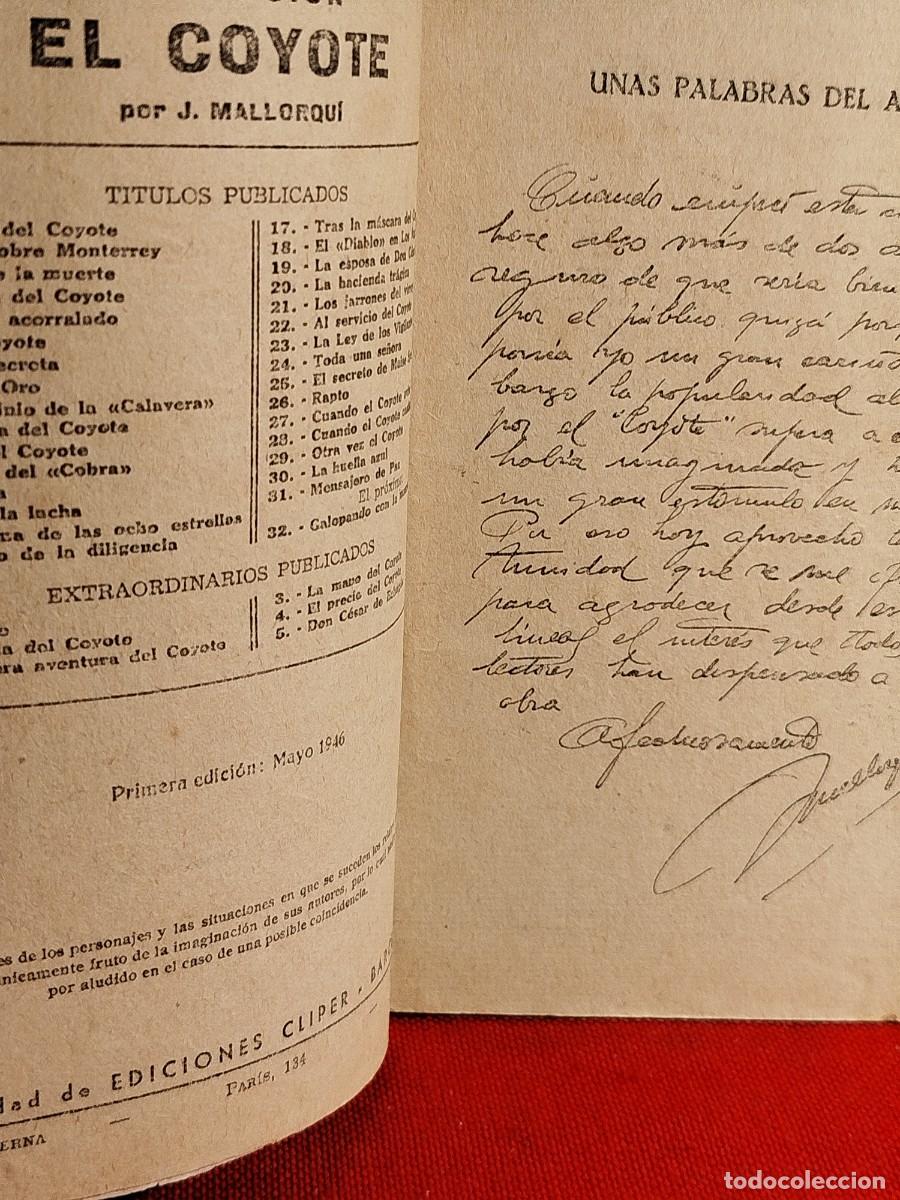 EL COYOTE
por J. MALLORQUÍ
TITULOS PUBLICADOS
del Coyote
obre Monterrey
la muerte
del Coyote
acorralado
yote
ecreta
Oro
inio de la «Calavera»
a del Coyote
el Coyote
del «Cobra»
a
la lucha
na de las ocho estrellas
o de la diligencia
17. - Tras la máscara del
18. - El «Diablo» en Los
19. - La esposa de Don
20. - La hacienda trágica
21. - Los jarrones del
22. - Al servicio del Coyote
23. - La Ley de los
24. - Toda una señora
25. - El secreto de
26. - Rapto
27. - Cuando el Coyote
28. - Cuando el Coyote
29. - Otra vez el Coyote
30. - La huella azul
31. - Mensajero de Paz
El próximo
32. - Galopando con la
EXTRAORDINARIOS PUBLICADOS
o
da del Coyote
era aventura del Coyote
3. - La mano del Coyote
4. - El precio del Coyote
5. - Don César de
Primera edición: Mayo 1946
es de los personajes y las situaciones en que se suceden los
nicamente fruto de la imaginación de sus autores, por lo cual
por aludido en el caso de una posible coincidencia.
dad de EDICIONES CLIPER - BARC
PARÍS, 134
ERNA
UNAS PALABRAS DEL A
Cuando empecé esta
hace algo más de dos a
seguro de que sería bien
por el público quizá por
ponía yo un gran cariño
bargo la popularidad al
por el "Coyote" supera a
había imaginado y
un gran estímulo en m
Por eso hoy aprovecho
tunidad que se me
para agradecer desde es
líneas el interés que todos
lectores han dispensado a
obra
Afectuosamente
todocoleccion